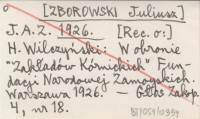 [ZBOROWSKI Juliusz]
J.A.Z. 1926. [Rec. o:]
H. Wilczyński: W obronie
"Zakładów Kórnickich" Fun-
dacji Narodowej Zamoyskich.
Warszawa 1926. — Głos Zakop.
4, nr 18.